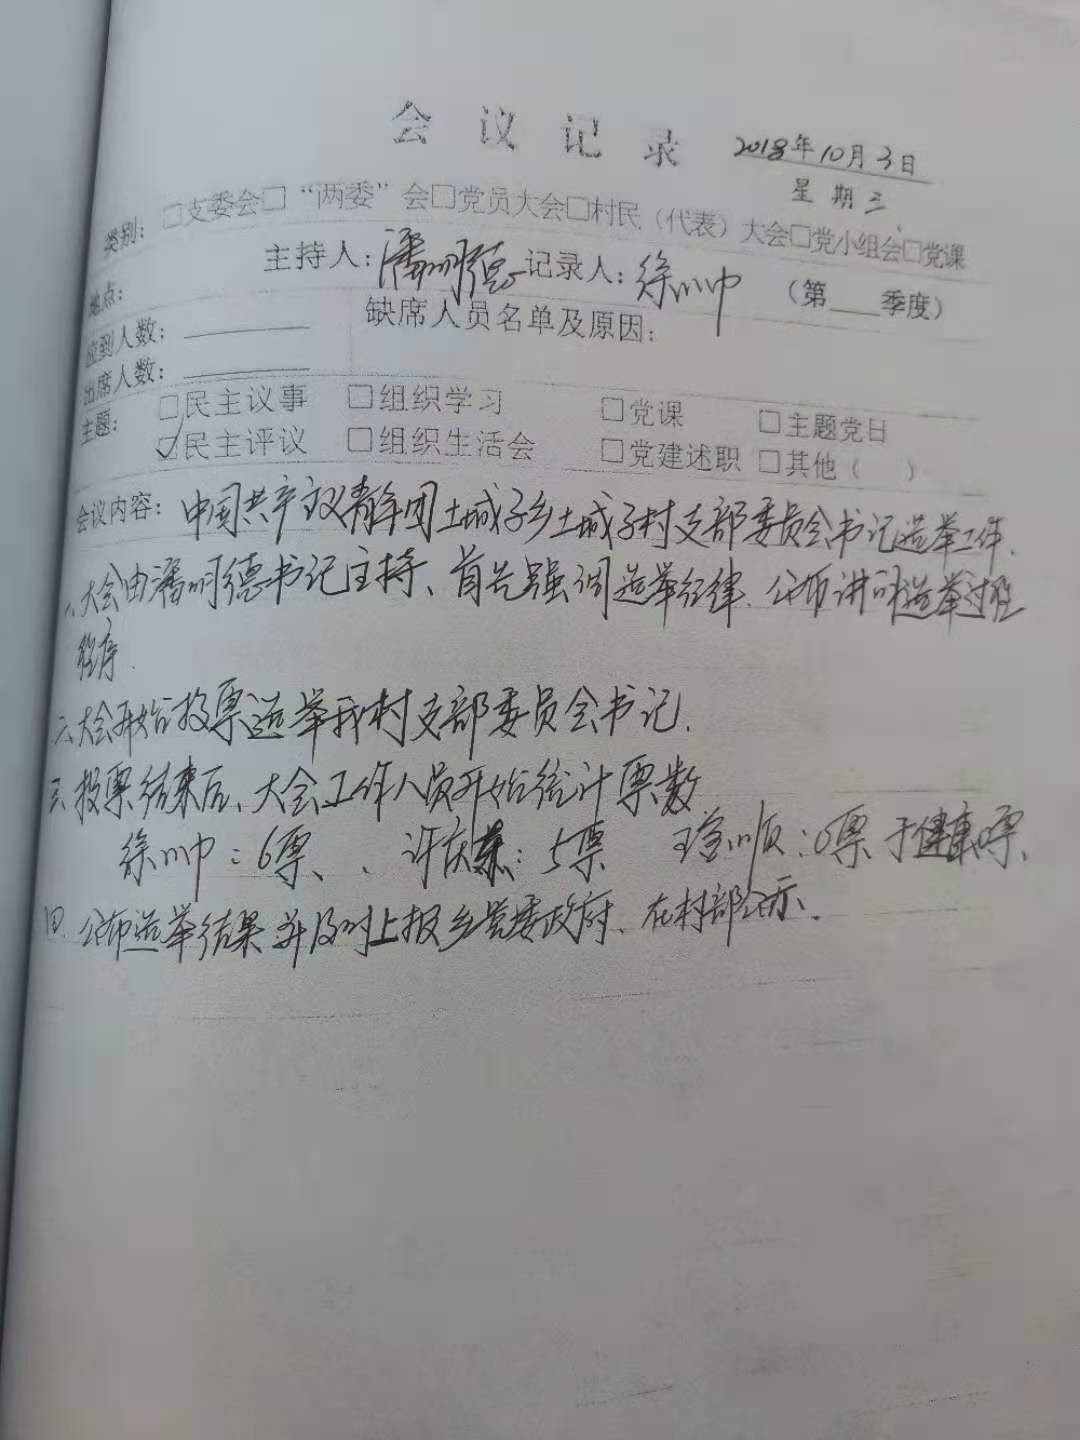 会议记录 2018年10月3日
星期三
类别：□支委会□“两委”会□党员大会□村民（代表）大会□党小组会□党课
地点： 主持人：潘明德 记录人：徐小巾 （第___季度）
应到人数： 缺席人员名单及原因：
出席人数：
主题： □民主议事 □组织学习 □党课 □主题党日
☑民主评议 □组织生活会 □党建述职 □其他（ ）
会议内容：中国共产主义青年团土城子乡土城子村支部委员会书记选举工作、
一、大会由潘明德书记主持、首先强调选举纪律、公布讲词选举过程
程序.
二、大会开始投票选举我村支部委员会书记.
三、投票结束后、大会工作人员开始统计票数
徐小巾：6票、、许庆东：5票 王 顺：0票 于健康0票、
四、公布选举结果并及时上报乡党委政府、在村部公示.